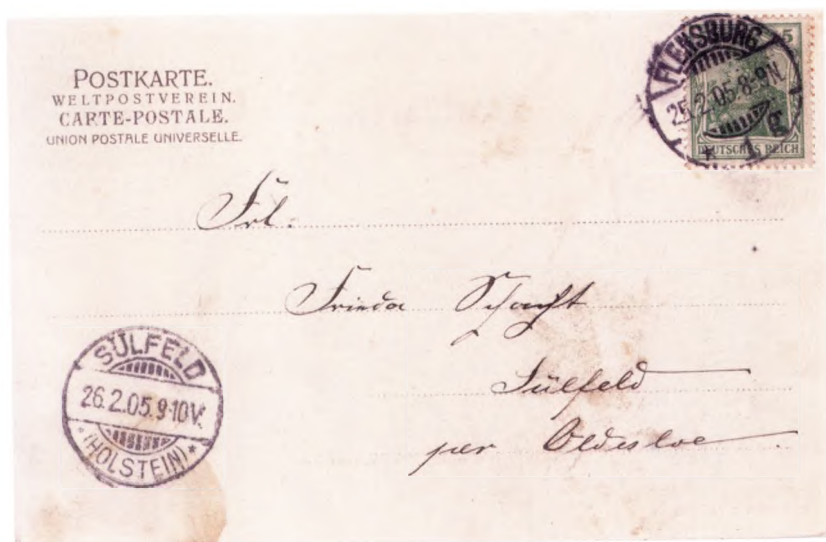 POSTKARTE.
WELTPOSTVEREIN.
CARTE-POSTALE.
UNION POSTALE UNIVERSELLE.
FLENSBURG
25.2.05.8-9N.
* 1 g
5
DEUTSCHES REICH
Frl.
Frieda Schacht
Sülfeld
per Oldesloe
SÜLFELD
26.2.05.9-10V.
*(HOLSTEIN)*